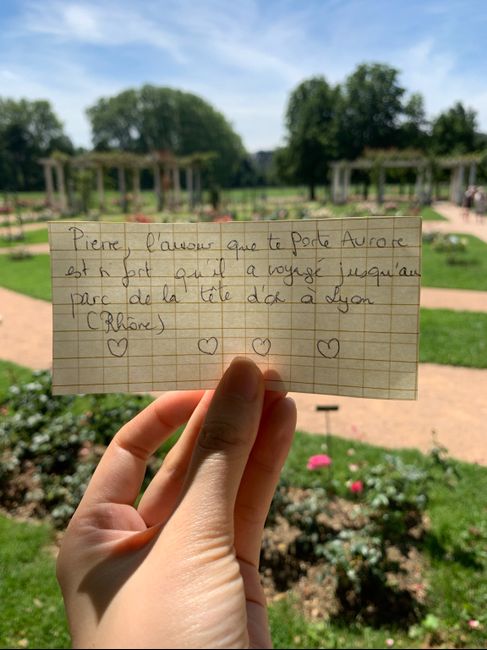 Pierre, l'amour que te porte Aurore
est si fort qu'il a voyagé jusqu'au
parc de la tête d'or à Lyon
(Rhône)
♡ ♡ ♡ ♡